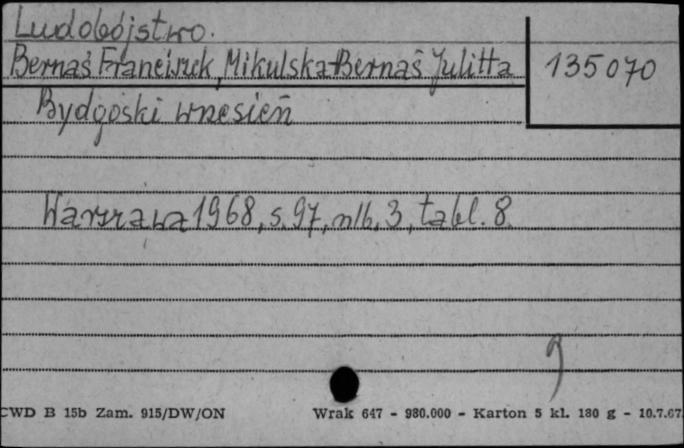 Ludobójstwo.
Bernaś Franciszek, Mikulska-Bernaś Julitta
135070
Bydgoski wrzesień
Warszawa 1968, s. 97, nlb. 3, tabl. 8.
CWD B 15b Zam. 915/DW/ON
Wrak 647 - 980.000 - Karton 5 kl. 180 g - 10.7.67.